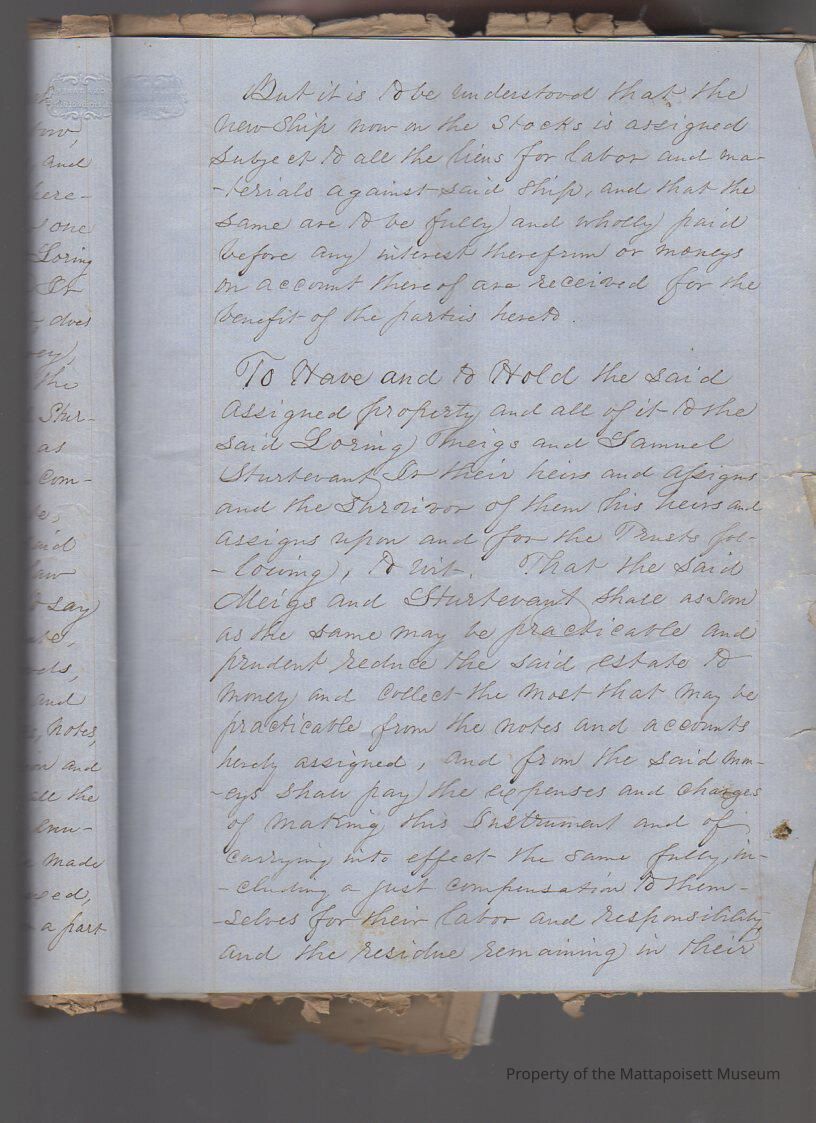 But it is to be understood that the
new Ship now on the Stocks is assigned
subject to all the liens for labor and ma-
-terials against said Ship, and that the
same are to be fully and wholly paid
before any interest therefrom or moneys
on account thereof are received for the
benefit of the parties hereto.
To Have and to Hold the said
assigned property and all of it to the
said Loring Meigs and Samuel
Sturtevant Jr their heirs and assigns
and the Survivor of them his heirs and
assigns upon and for the Trusts fol-
-lowing, to wit. That the said
Meigs and Sturtevant shall as soon
as the same may be practicable and
prudent reduce the said estate to
money and collect the most that may be
practicable from the notes and accounts
herely assigned, and from the said mon-
-eys shall pay the expenses and charges
of making this Instrument and of
carrying into effect the same fully, in-
-cluding a just compensation to them-
-selves for their labor and responsibility,
and the residue remaining in their
and
here-
one
Loring
Jr
does
the
Stur-
as
com-
say
and
notes,
and
all the
made
a part
Property of the Mattapoisett Museum